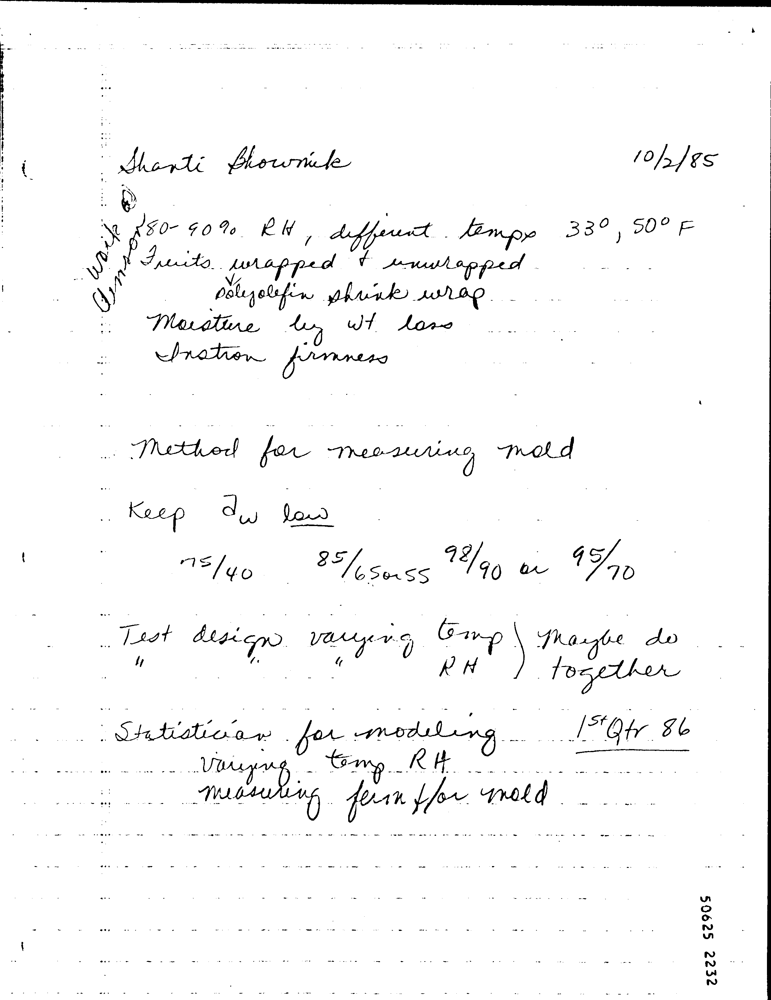 Shanti Bhowmik 10/2/85
Work @
Clemson
80-90% RH, different temps 33°, 50° F
Fruits wrapped & unwrapped
polyolefin shrink wrap
Moisture by wt loss
Instron firmness
Method for measuring mold
Keep aw low
75/40 85/65 or 55 98/90 or 95/70
Test design varying temp ) Maybe do
" " " RH ) together
Statistician for modeling 1st Qtr 86
varying temp RH
measuring ferm &/or mold
50625 2232